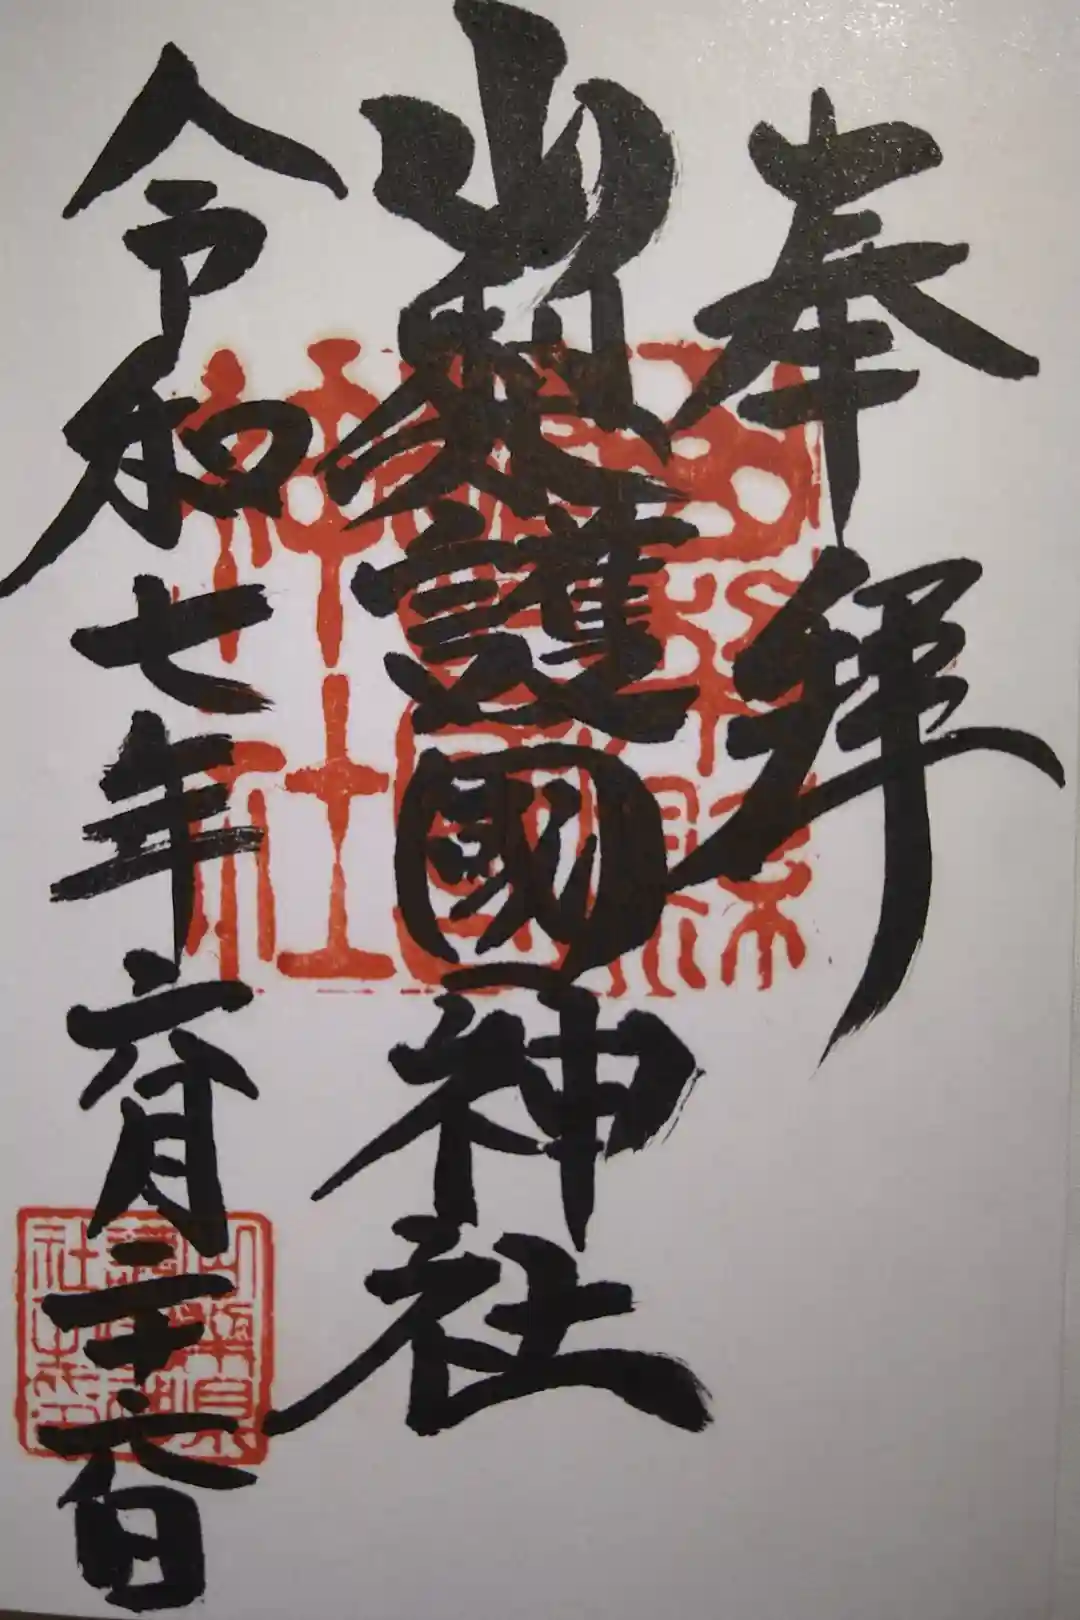 奉拝
山梨護國神社
令和七年六月二十六日
山梨縣
護國
神社